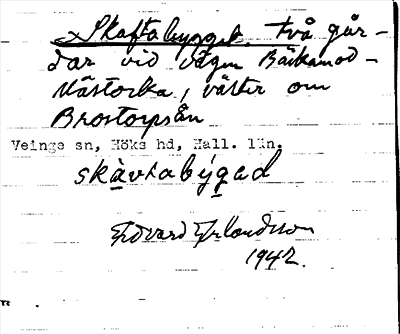 Skaftabygget. två går-
dar vid vägen Bäckamod-
Mästocka, väster om
Brostorpsån
Veinge sn, Höks hd, Hall. län.
skàvtabýgad
Edvard Erlandsson
1942.